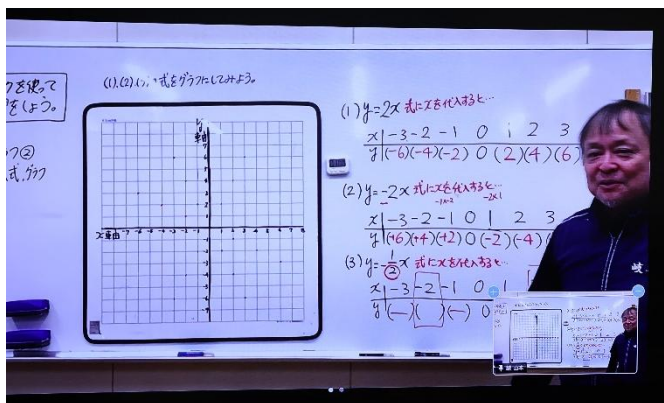 クを使って
をしよう。
式、グラフ
(1),(2),(3)の式をグラフにしてみよう。
y
軸
x軸
(1) y=2x 式にxを代入すると…
x -3 -2 -1 0 1 2 3
y (-6)(-4)(-2) 0 (2)(4)(6)
(2) y=-2x 式にxを代入すると…
-1×-2 -2×1
x -3 -2 -1 0 1 2 3
y (+6)(+4)(+2) 0 (-2)(-4)(
(3) y=-1/2x 式にxを代入すると…
x -3 -2 -1 0 1
y (—)( )(—) 0
岐